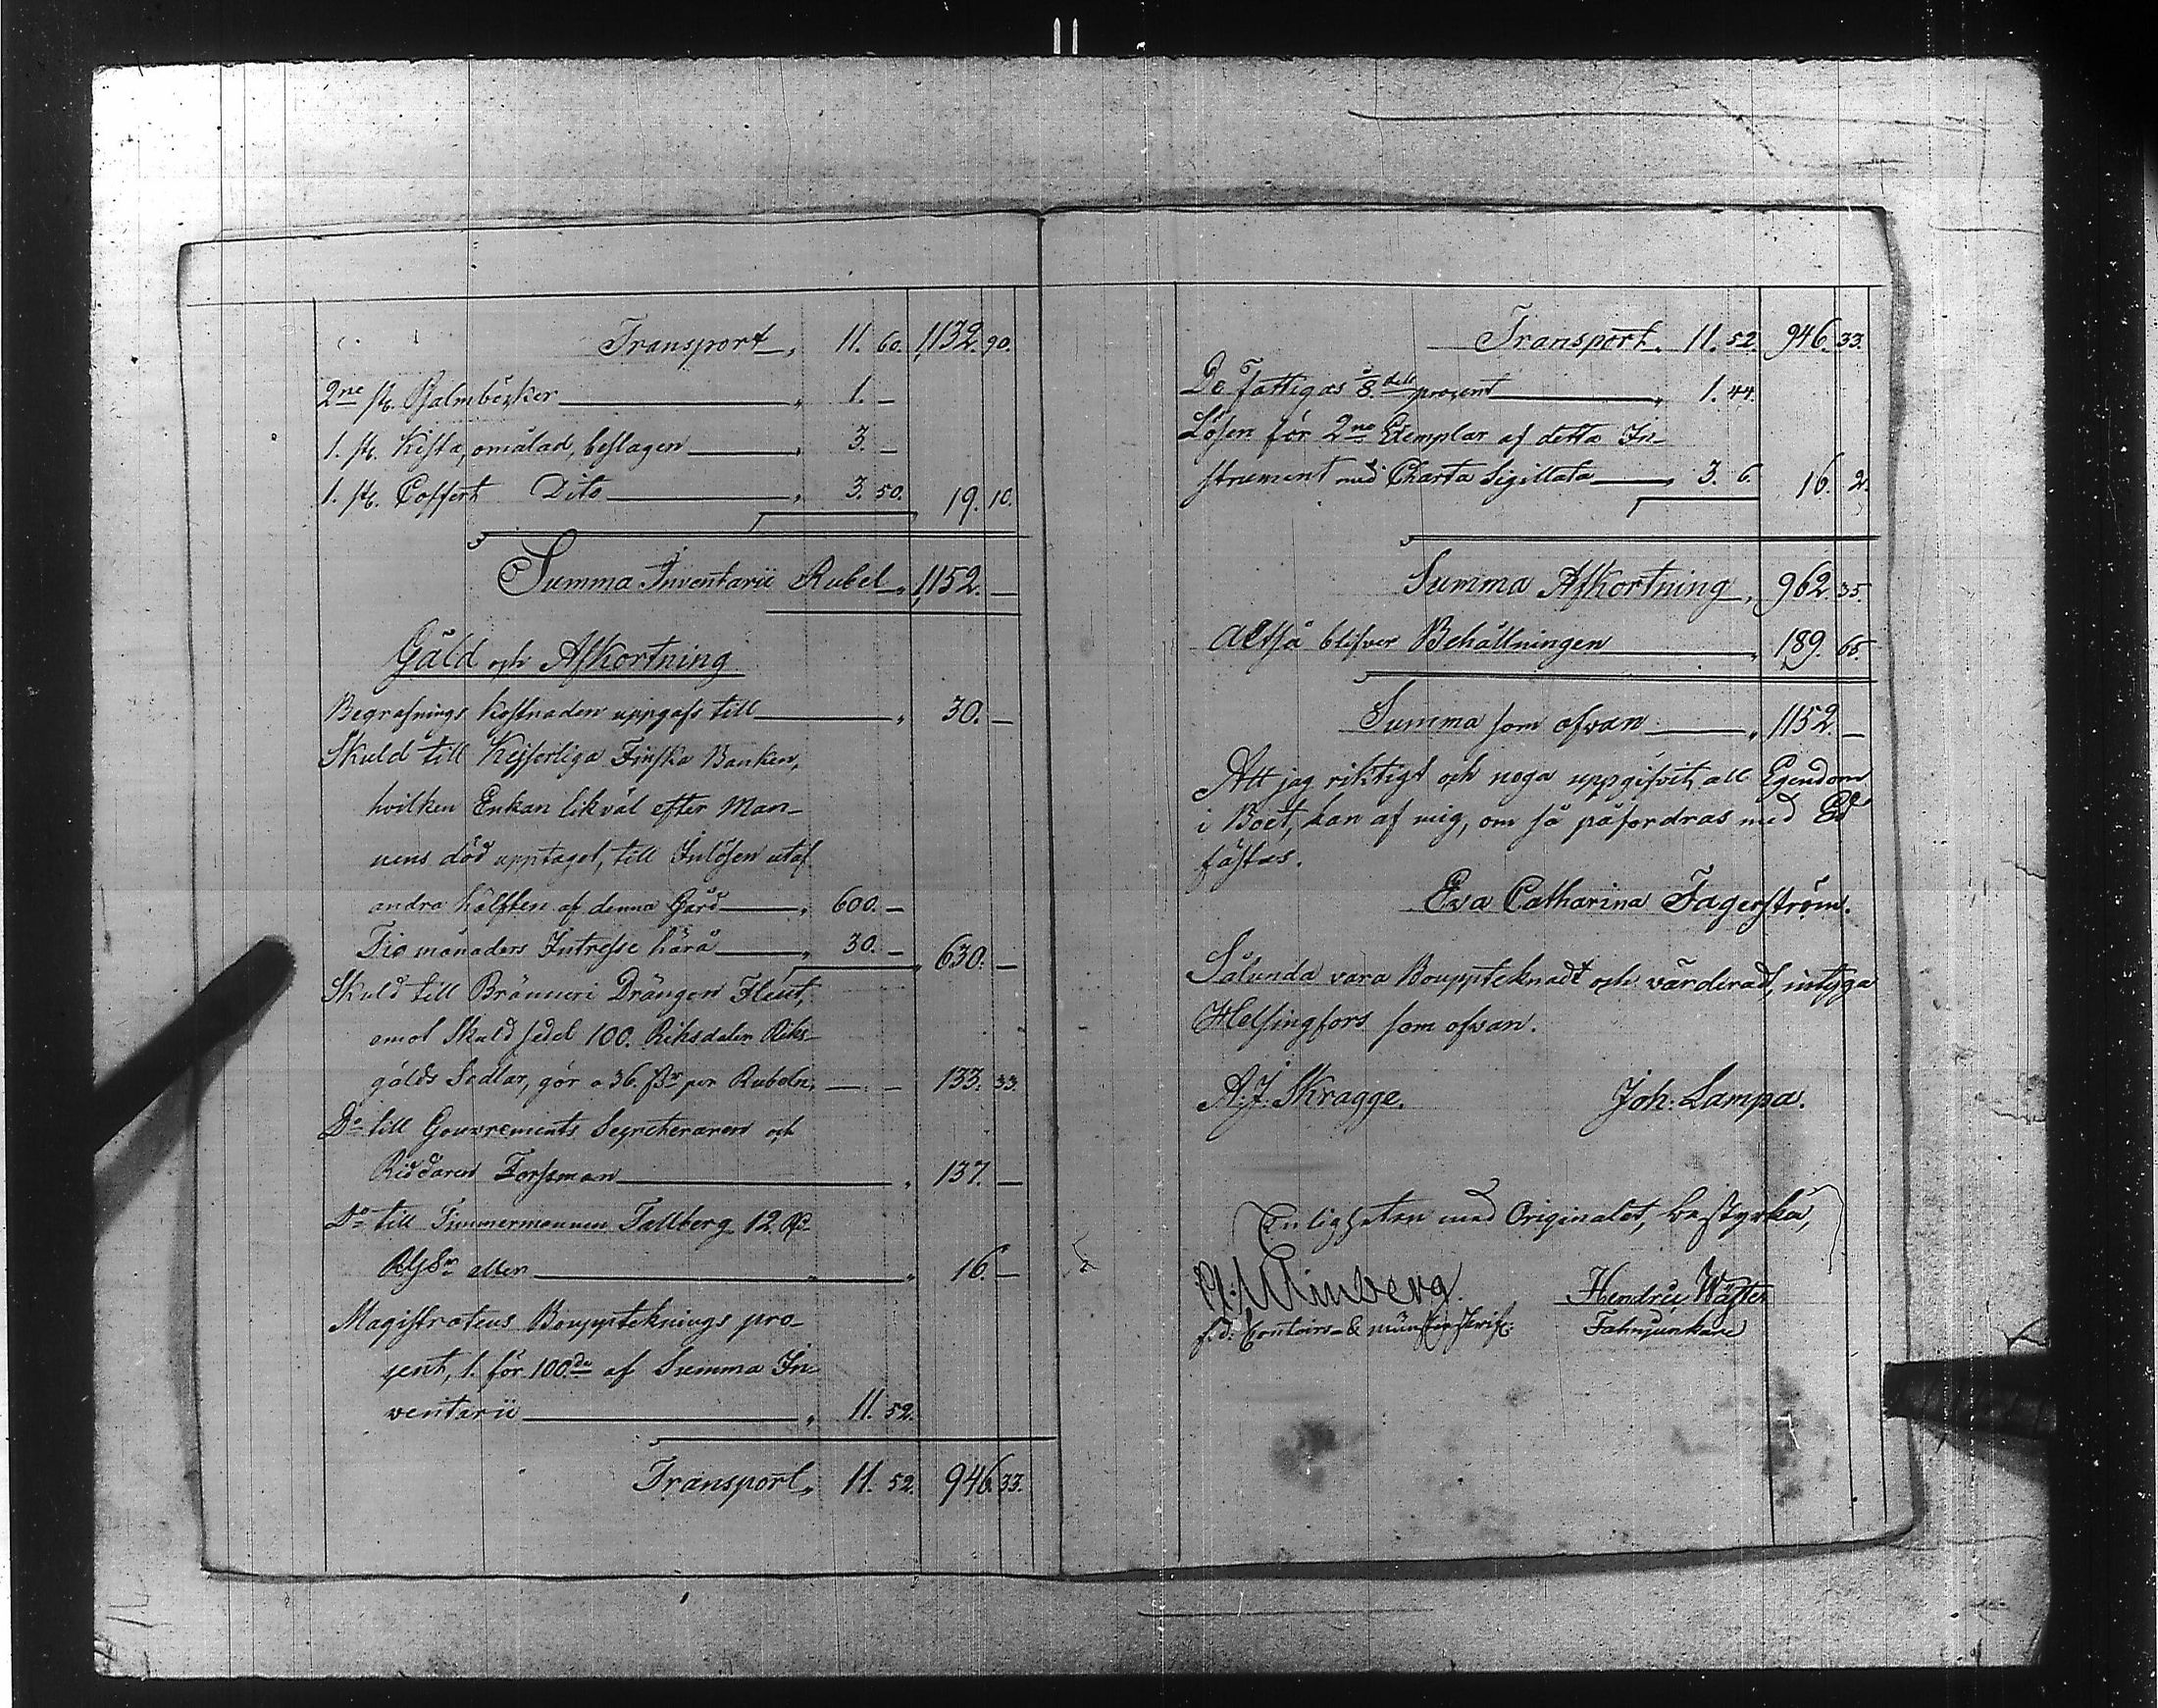 Transport „ 11. 60. 1,132. 90.
2ne st. Psalmböcker „ 1. —
1. st. Kista, omålad, beslagen „ 3. —
1. st. Coffert Dito „ 3. 50. 19. 10.
Summa Inventarii Rubel „ 1,152. —
Gäld och Afkortning
Begrafnings kostnaden uppgafs till „ 30. —
Skuld till Kejserliga Finska Banken,
hvilken Enkan likväl efter Man-
nens död upptagit, till Inlösen utaf
andra hälften af denna Gård „ 600. —
Tio månaders Intresse härå „ 30. — 630. —
Skuld till Bränneri Drängen Flent,
emot Skuldsedel 100. Riksdaler Riks-
gälds Sedlar, gör a 36. ßr per Rubeln, — . — 133. 33.
Do till Gouvrements Secreteraren och
Riddaren Forssman „ 137. —
Do till Timmermannen Tallberg 12. Rd
RGSr eller „ 16. —
Magistratens Bouppteknings pro-
cent, 1. för 100.de af Summa In-
ventarii „ 11. 52.
Transport „ 11. 52. 946. 33.
Transport „ 11. 52. 946. 33.
De Fattigas 1/8.dels procent „ 1. 44.
Lösen för 2ne Exemplar af detta In-
strument med Charta Sigillata „ 3. 6. 16. 2.
Summa Afkortning „ 962. 35.
Altså blifver Behållningen „ 189. 65.
Summa som ofvan „ 1152. —
Att jag riktigt och noga uppgifvit, all Egendom
i Boet, kan af mig, om så påfordras med Ed
fästas.
Eva Catharina Fagerström.
Sålunda vara Bouppteknadt och värderadt, intyga
Helsingfors som ofvan.
A. J. Skragge. Joh: Lampa.
Enligheten med Originalet, bestyrka,
Winberg. Hendric Wäster
f. d. Contoirs- & mönsterskrif: Fahnjunkare